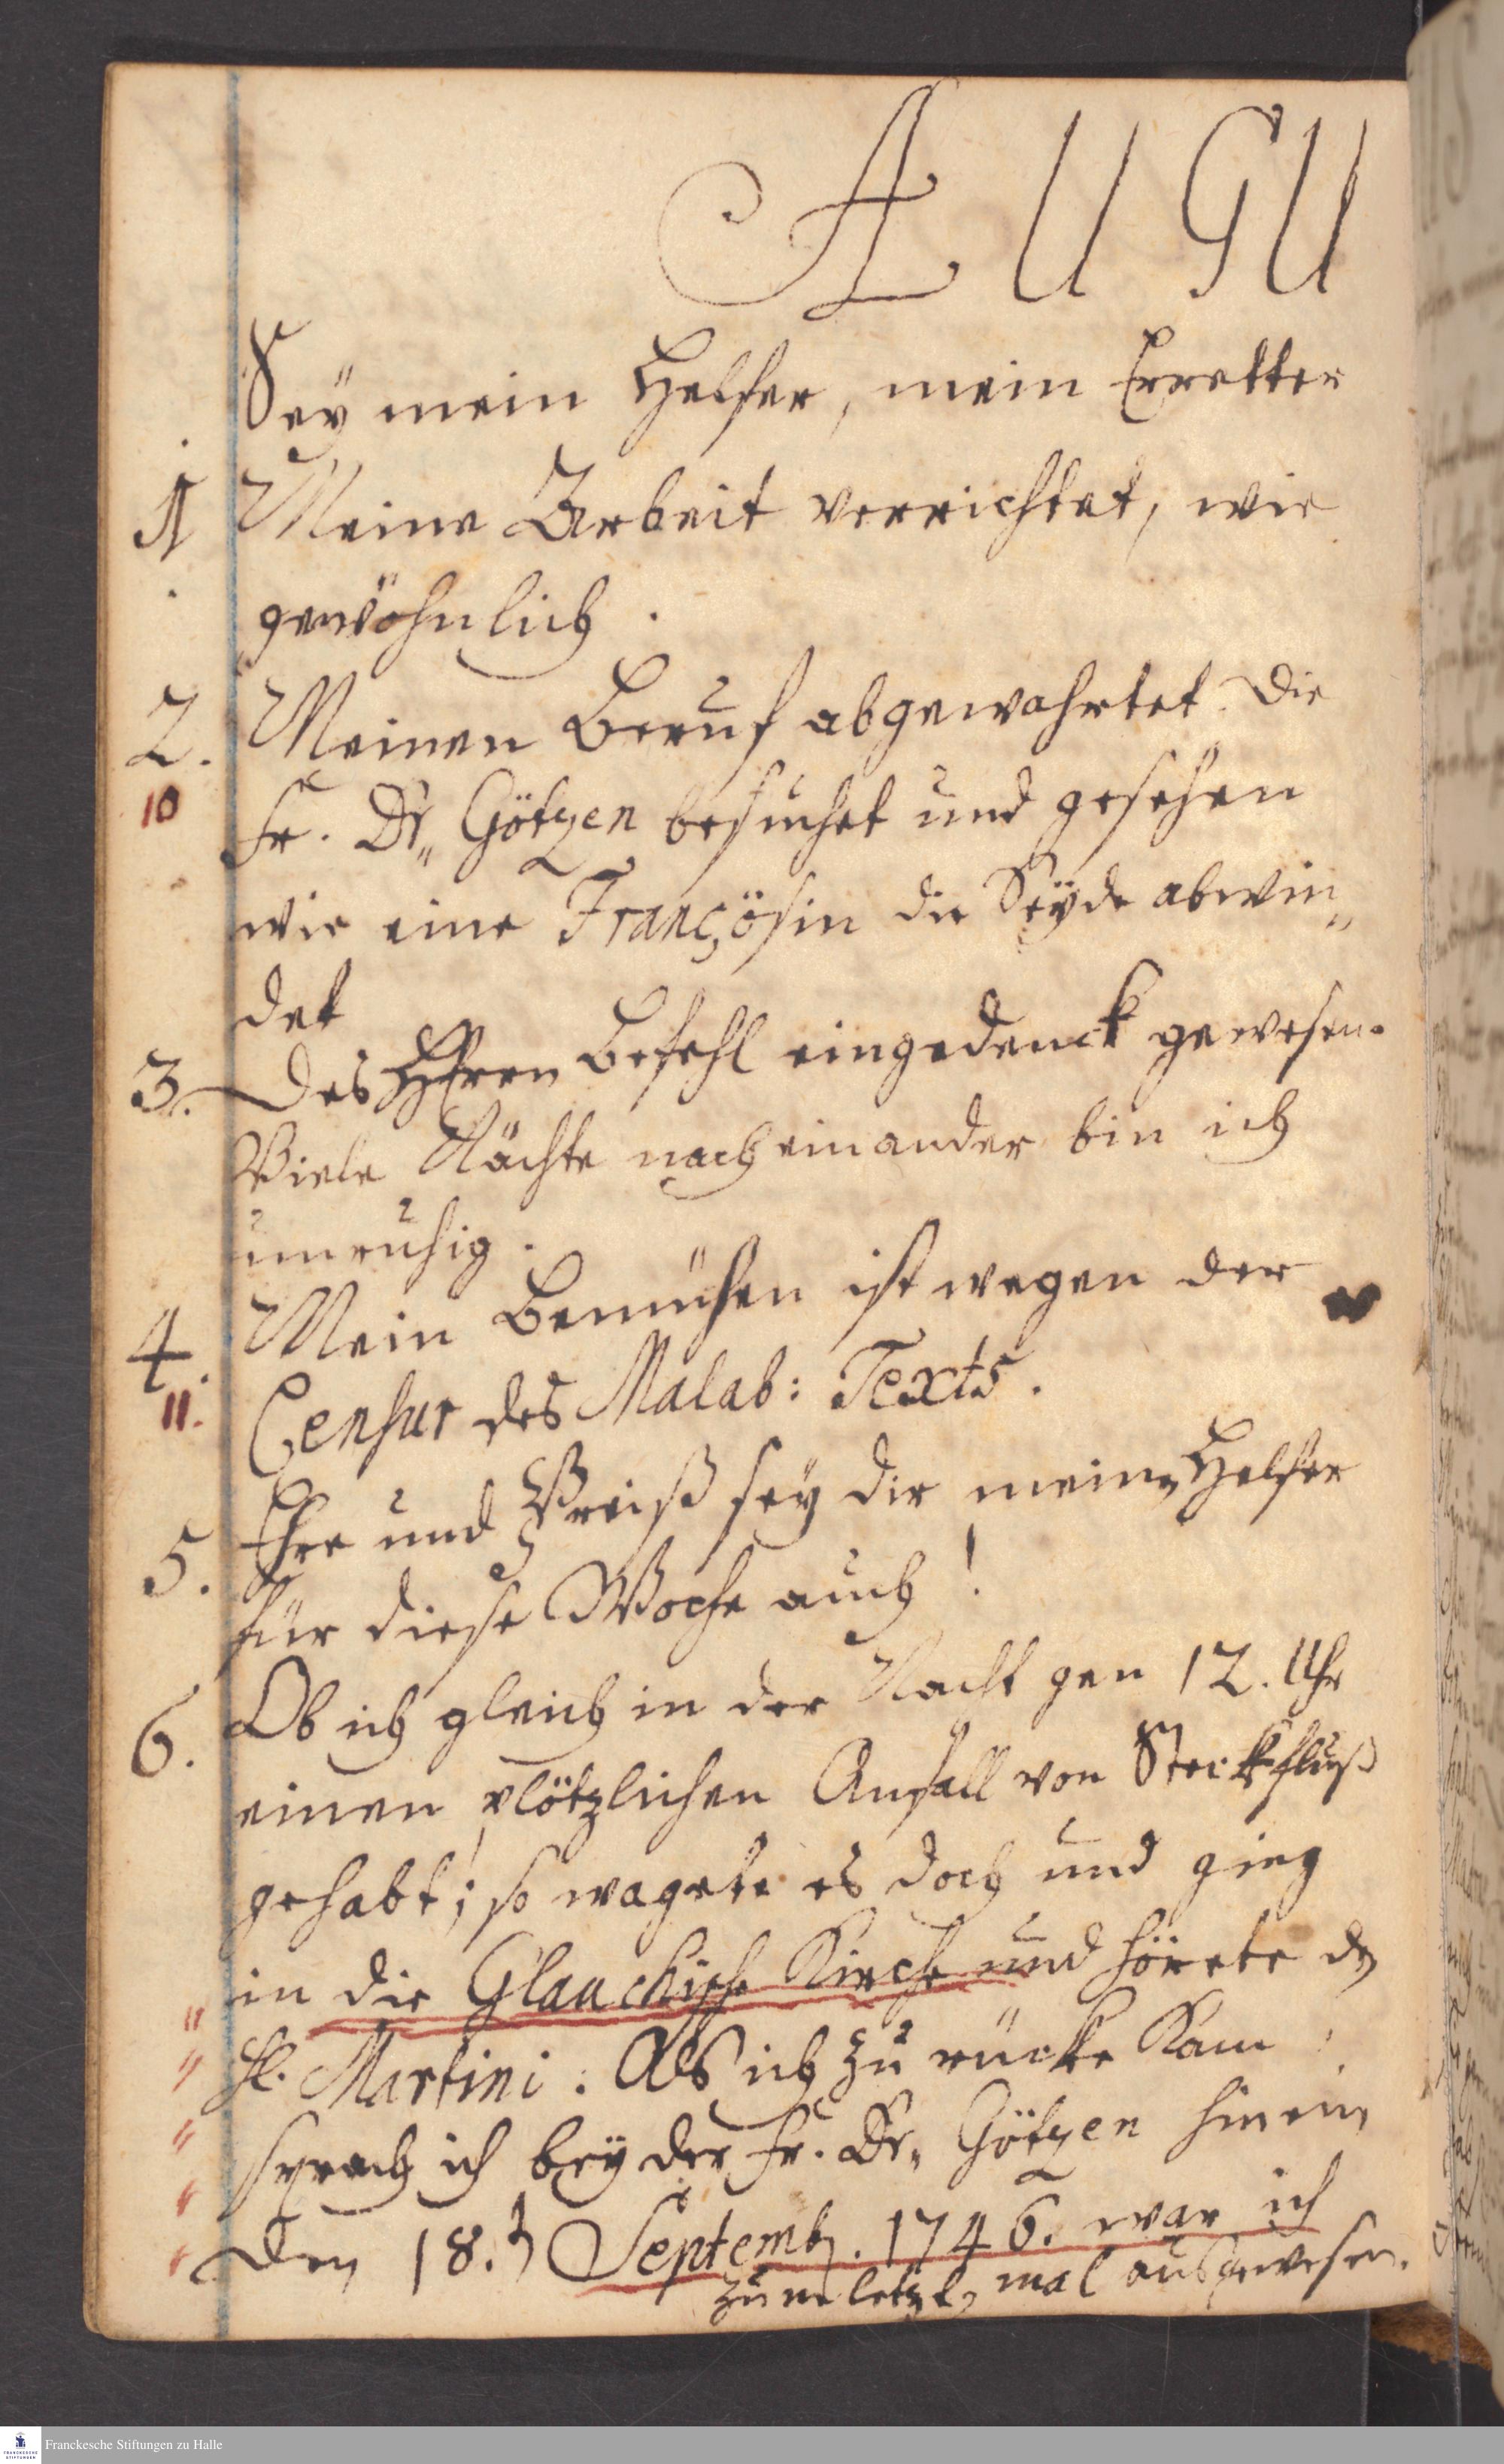 AUGU
Sey mein Helfer, mein Erretter
1 Meine Arbeit verrichtet, wie
gewöhnlich.
2. Meinen Beruf abgewahrtet. Die
10 Fr. Dr. Götzen besuchet und gesehen
wie eine Françösin die Seyde abwin„
det
3. Des HErren Befehl eingedenck gewesen.
Viele Nächte nach einander bin ich
unruhig.
4. Mein Bemühen ist wegen der
11. Censur des Malab: Texts.
5. Ehre und Preiß sey dir mein Helfer
für diese Woche auch!
6. Ob ich gleich in der Nacht gen 12. Uhr
einen plötzlichen Anfall von Steckfluß
gehabt; so wagete es doch und gieng
in die Glauchische Kirche und hörete den
H. Martini. Als ich zu rücke kam,
sprach ich bey der Fr. Dr. Götzen hinein
Den 18. Septemb. 1746. war ich
zum letzten mal ausgewesen.
Franckesche Stiftungen zu Halle